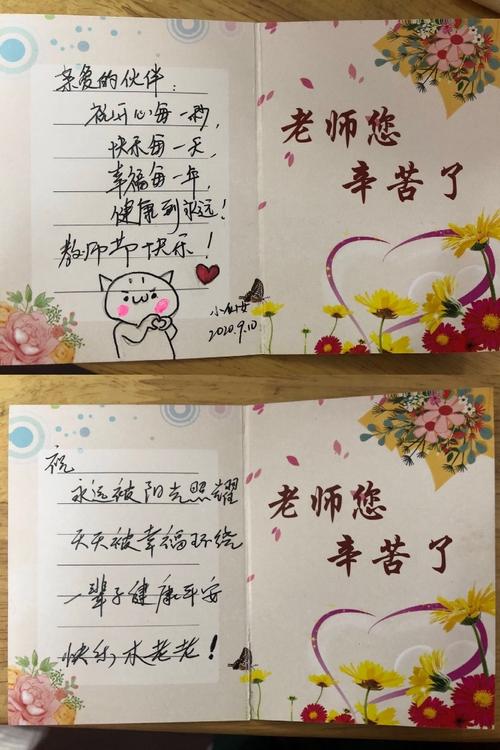 亲爱的伙伴：
祝开心每一秒，
快乐每一天，
幸福每一年，
健康到永远！
教师节快乐！
小仙女
2020.9.10
老师您
辛苦了
祝
永远被阳光照耀
天天被幸福环绕
一辈子健康平安
快乐永老老！
老师您
辛苦了